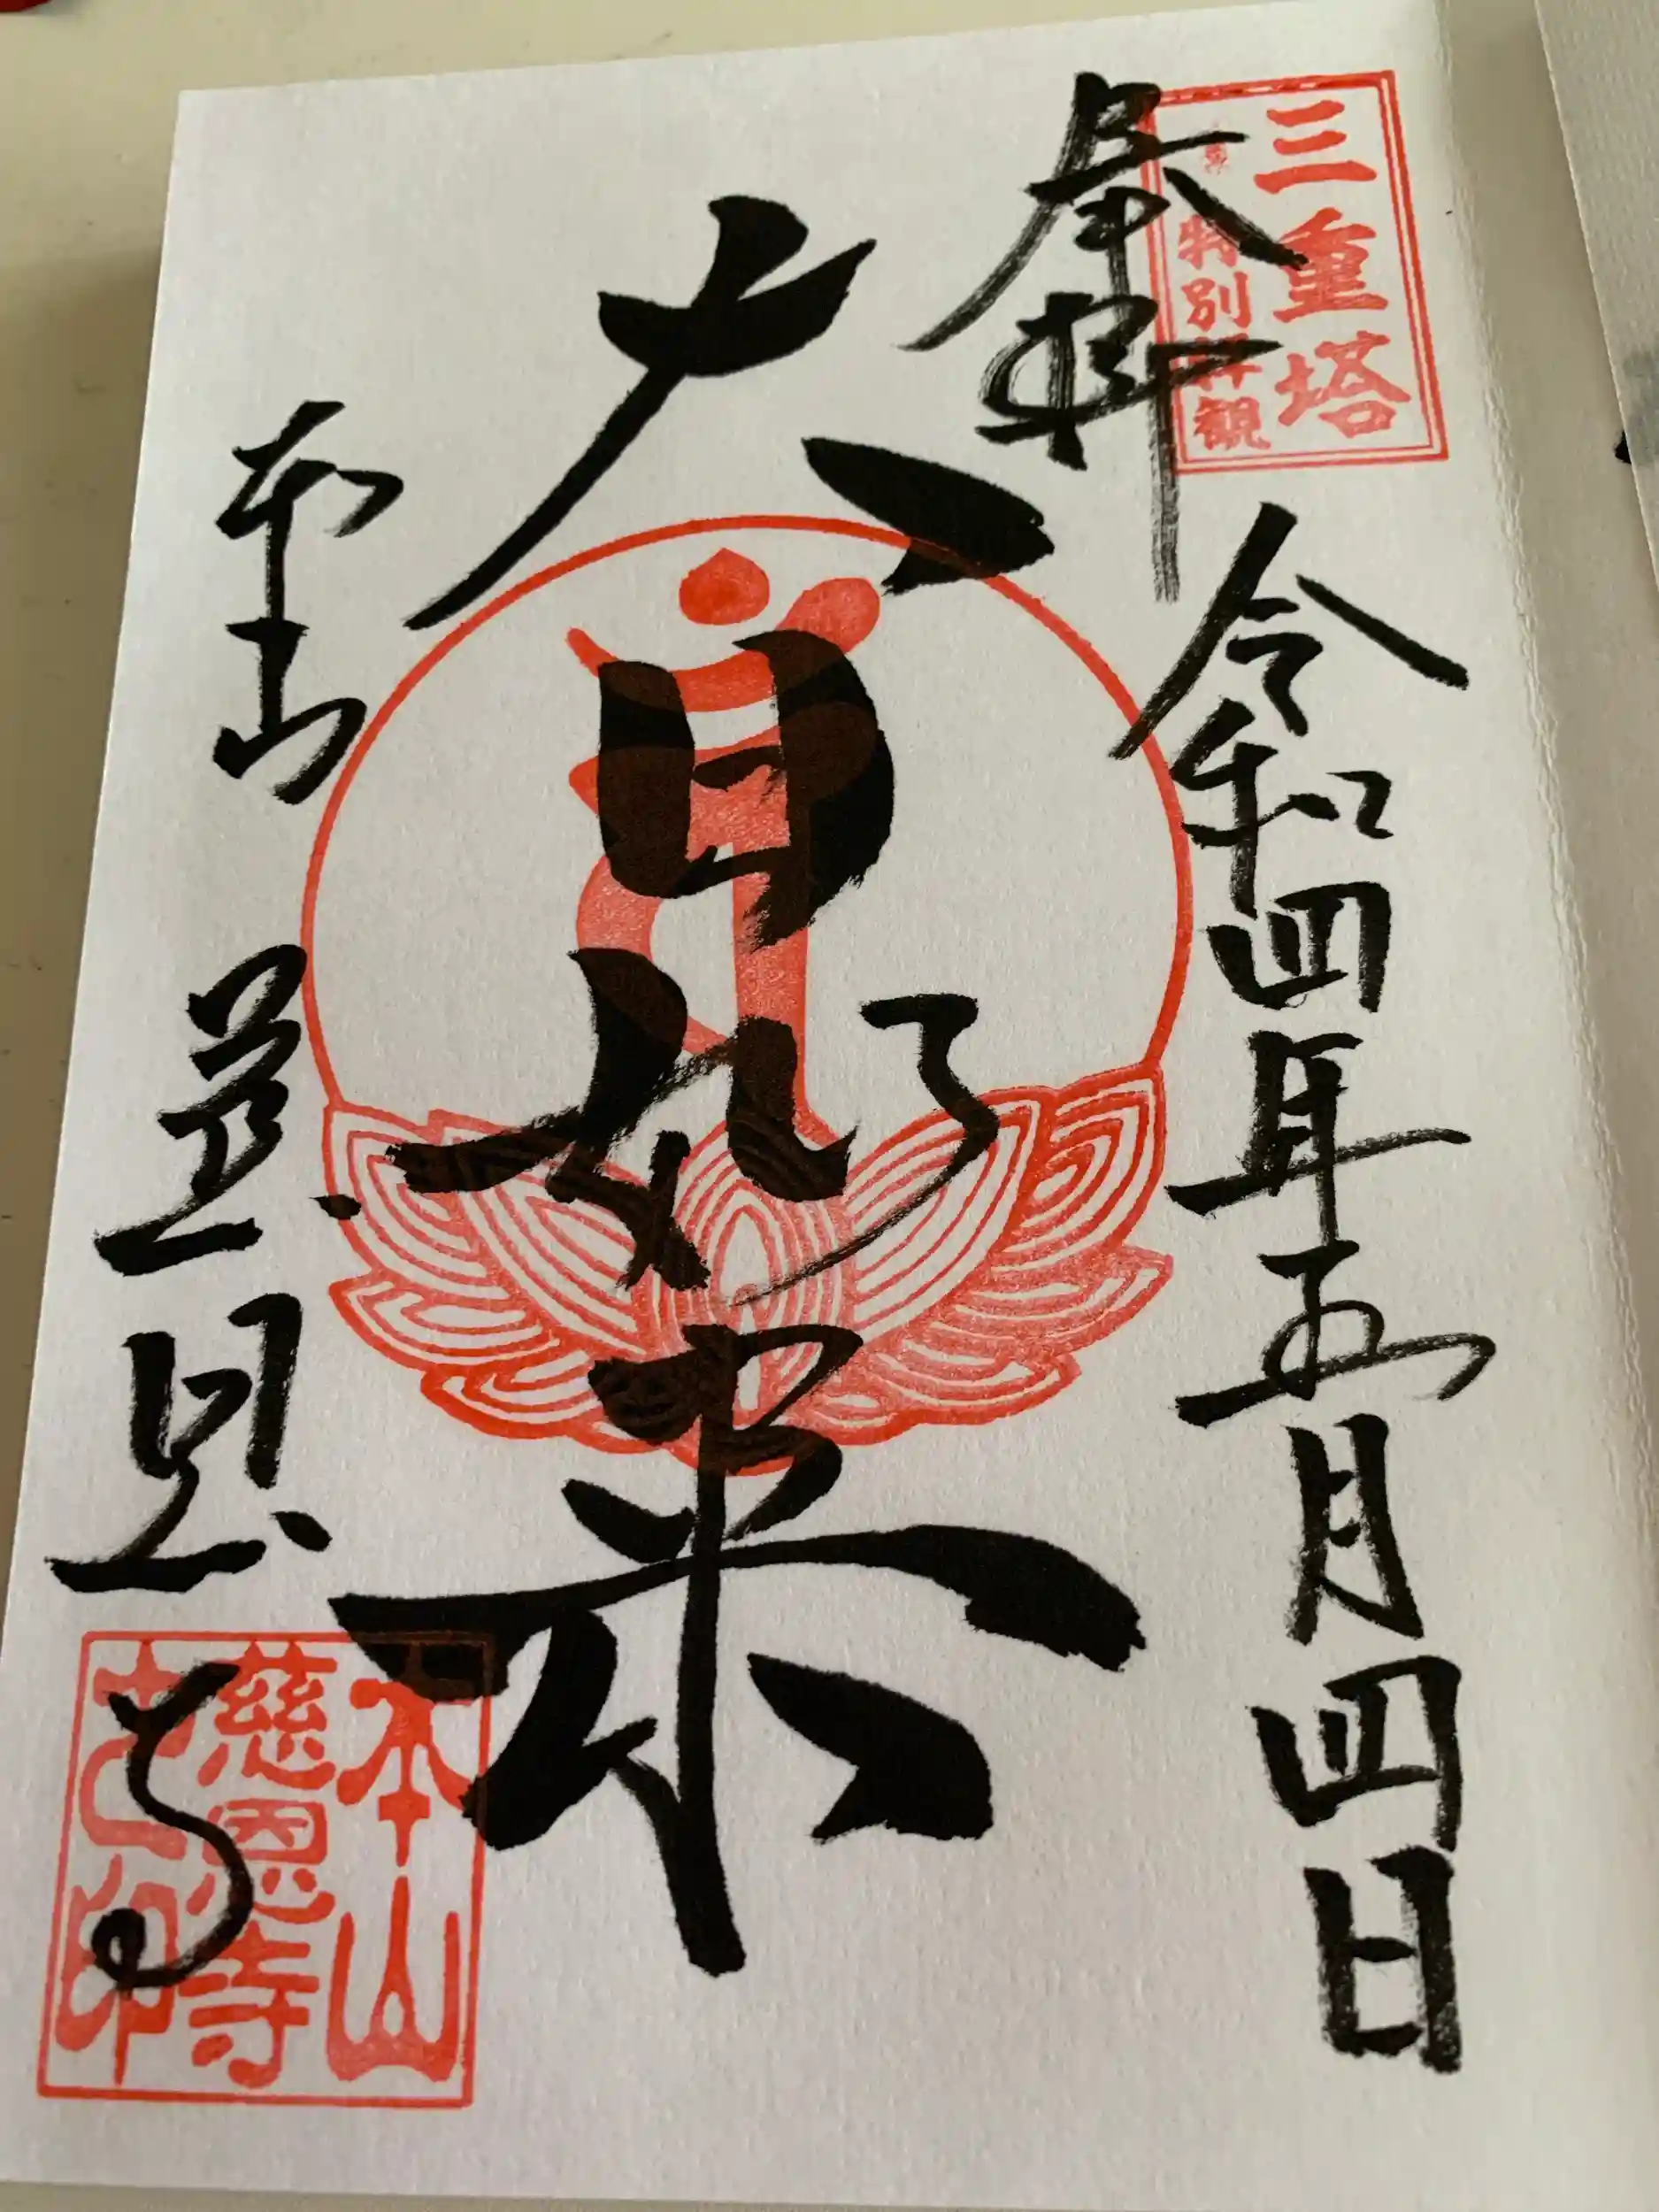 三重塔
特別拝観
奉拝
令和四年五月四日
大日如来
本山
慈恩寺
本山
慈恩寺